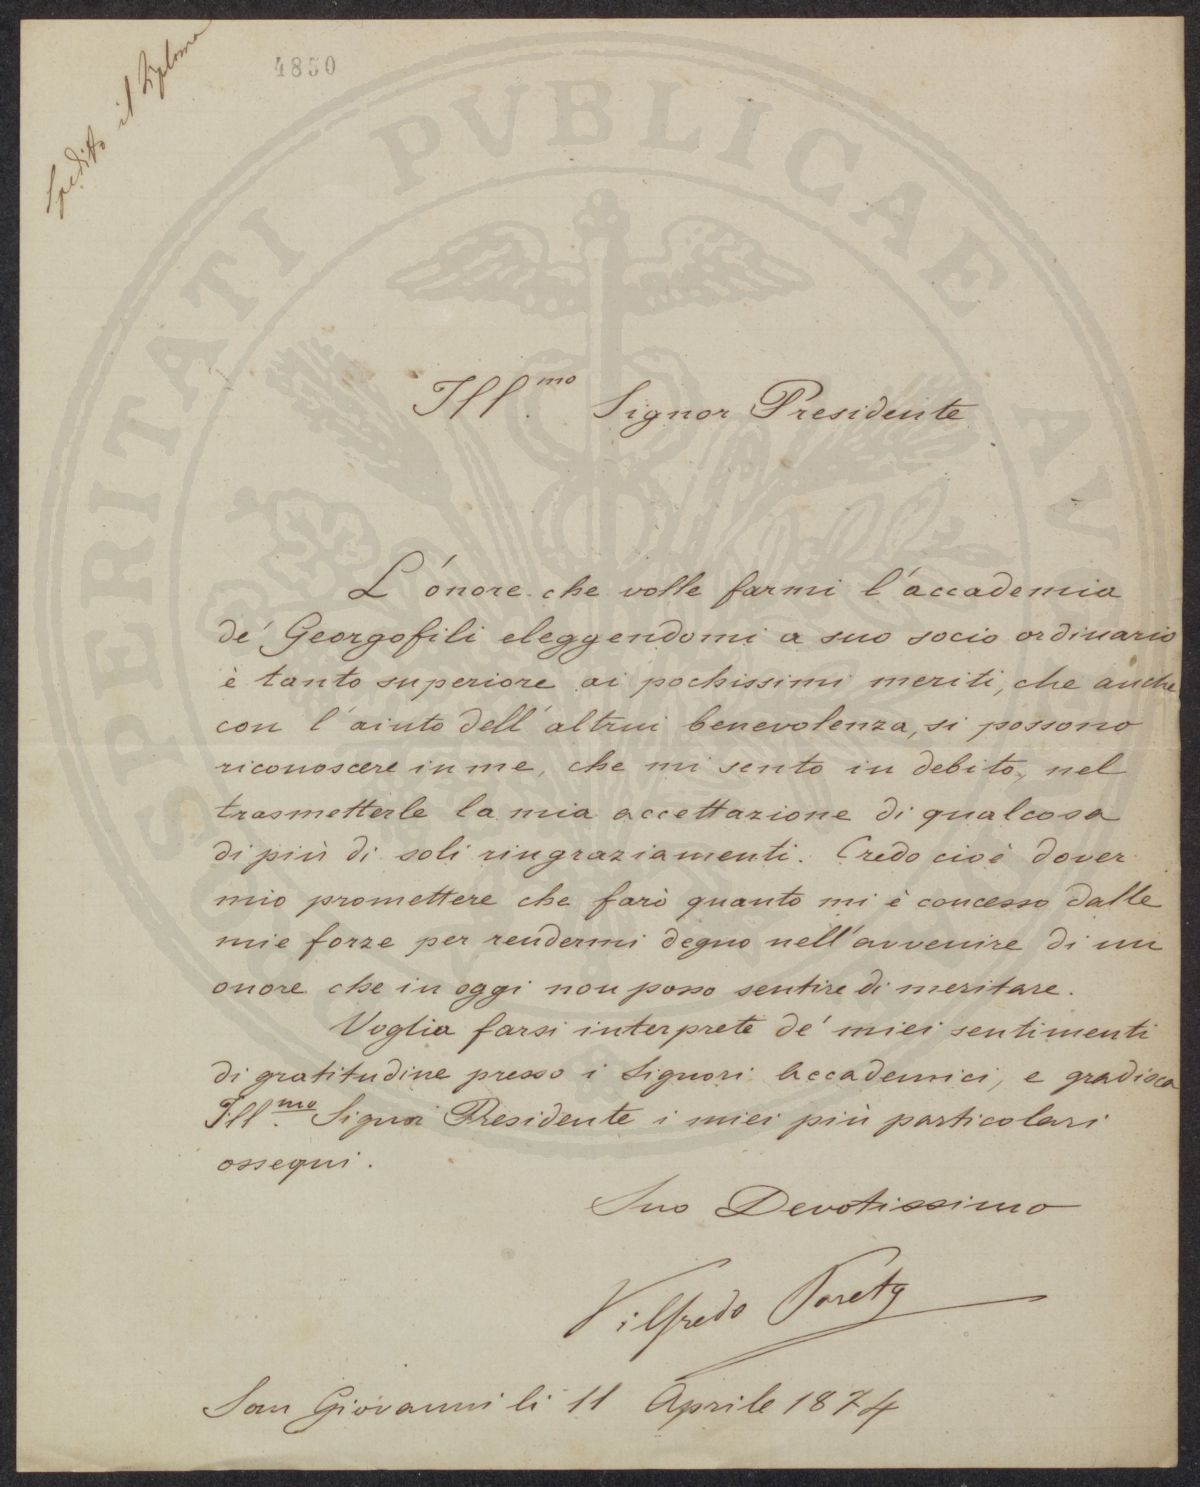 Spedito il Diploma
4850
PROSPERITATI PVBLICAE AVGENDAE
Ill.mo Signor Presidente
L'onore che volle farmi l'accademia
de' Georgofili eleggendomi a suo socio ordinario
è tanto superiore ai pochissimi meriti, che anche
con l'aiuto dell'altrui benevolenza, si possono
riconoscere in me, che mi sento in debito, nel
trasmetterle la mia accettazione di qualcosa
di più di soli ringraziamenti. Credo cioè dover
mio promettere che farò quanto mi è concesso dalle
mie forze per rendermi degno nell'avvenire di un
onore che in oggi non posso sentire di meritare.
Voglia farsi interprete de' miei sentimenti
di gratitudine presso i Signori Accademici, e gradisca
Ill.mo Signor Presidente i miei più particolari
ossequi.
Suo Devotissimo
Vilfredo Pareto
San Giovanni li 11 Aprile 1874